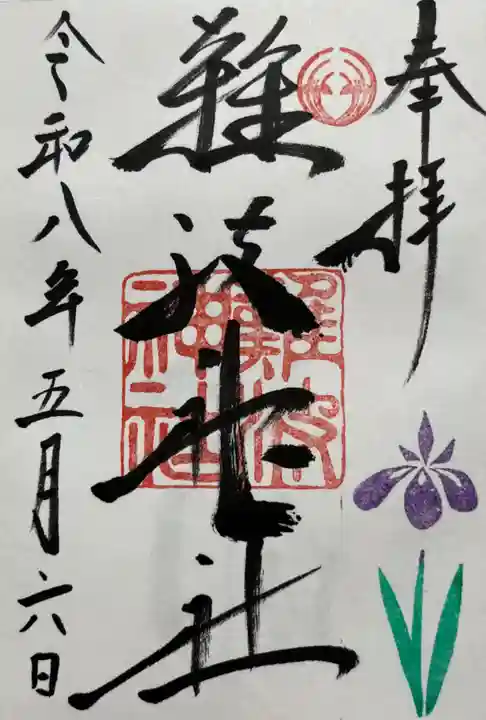 奉拝
難波神社
難波神社
令和八年五月六日